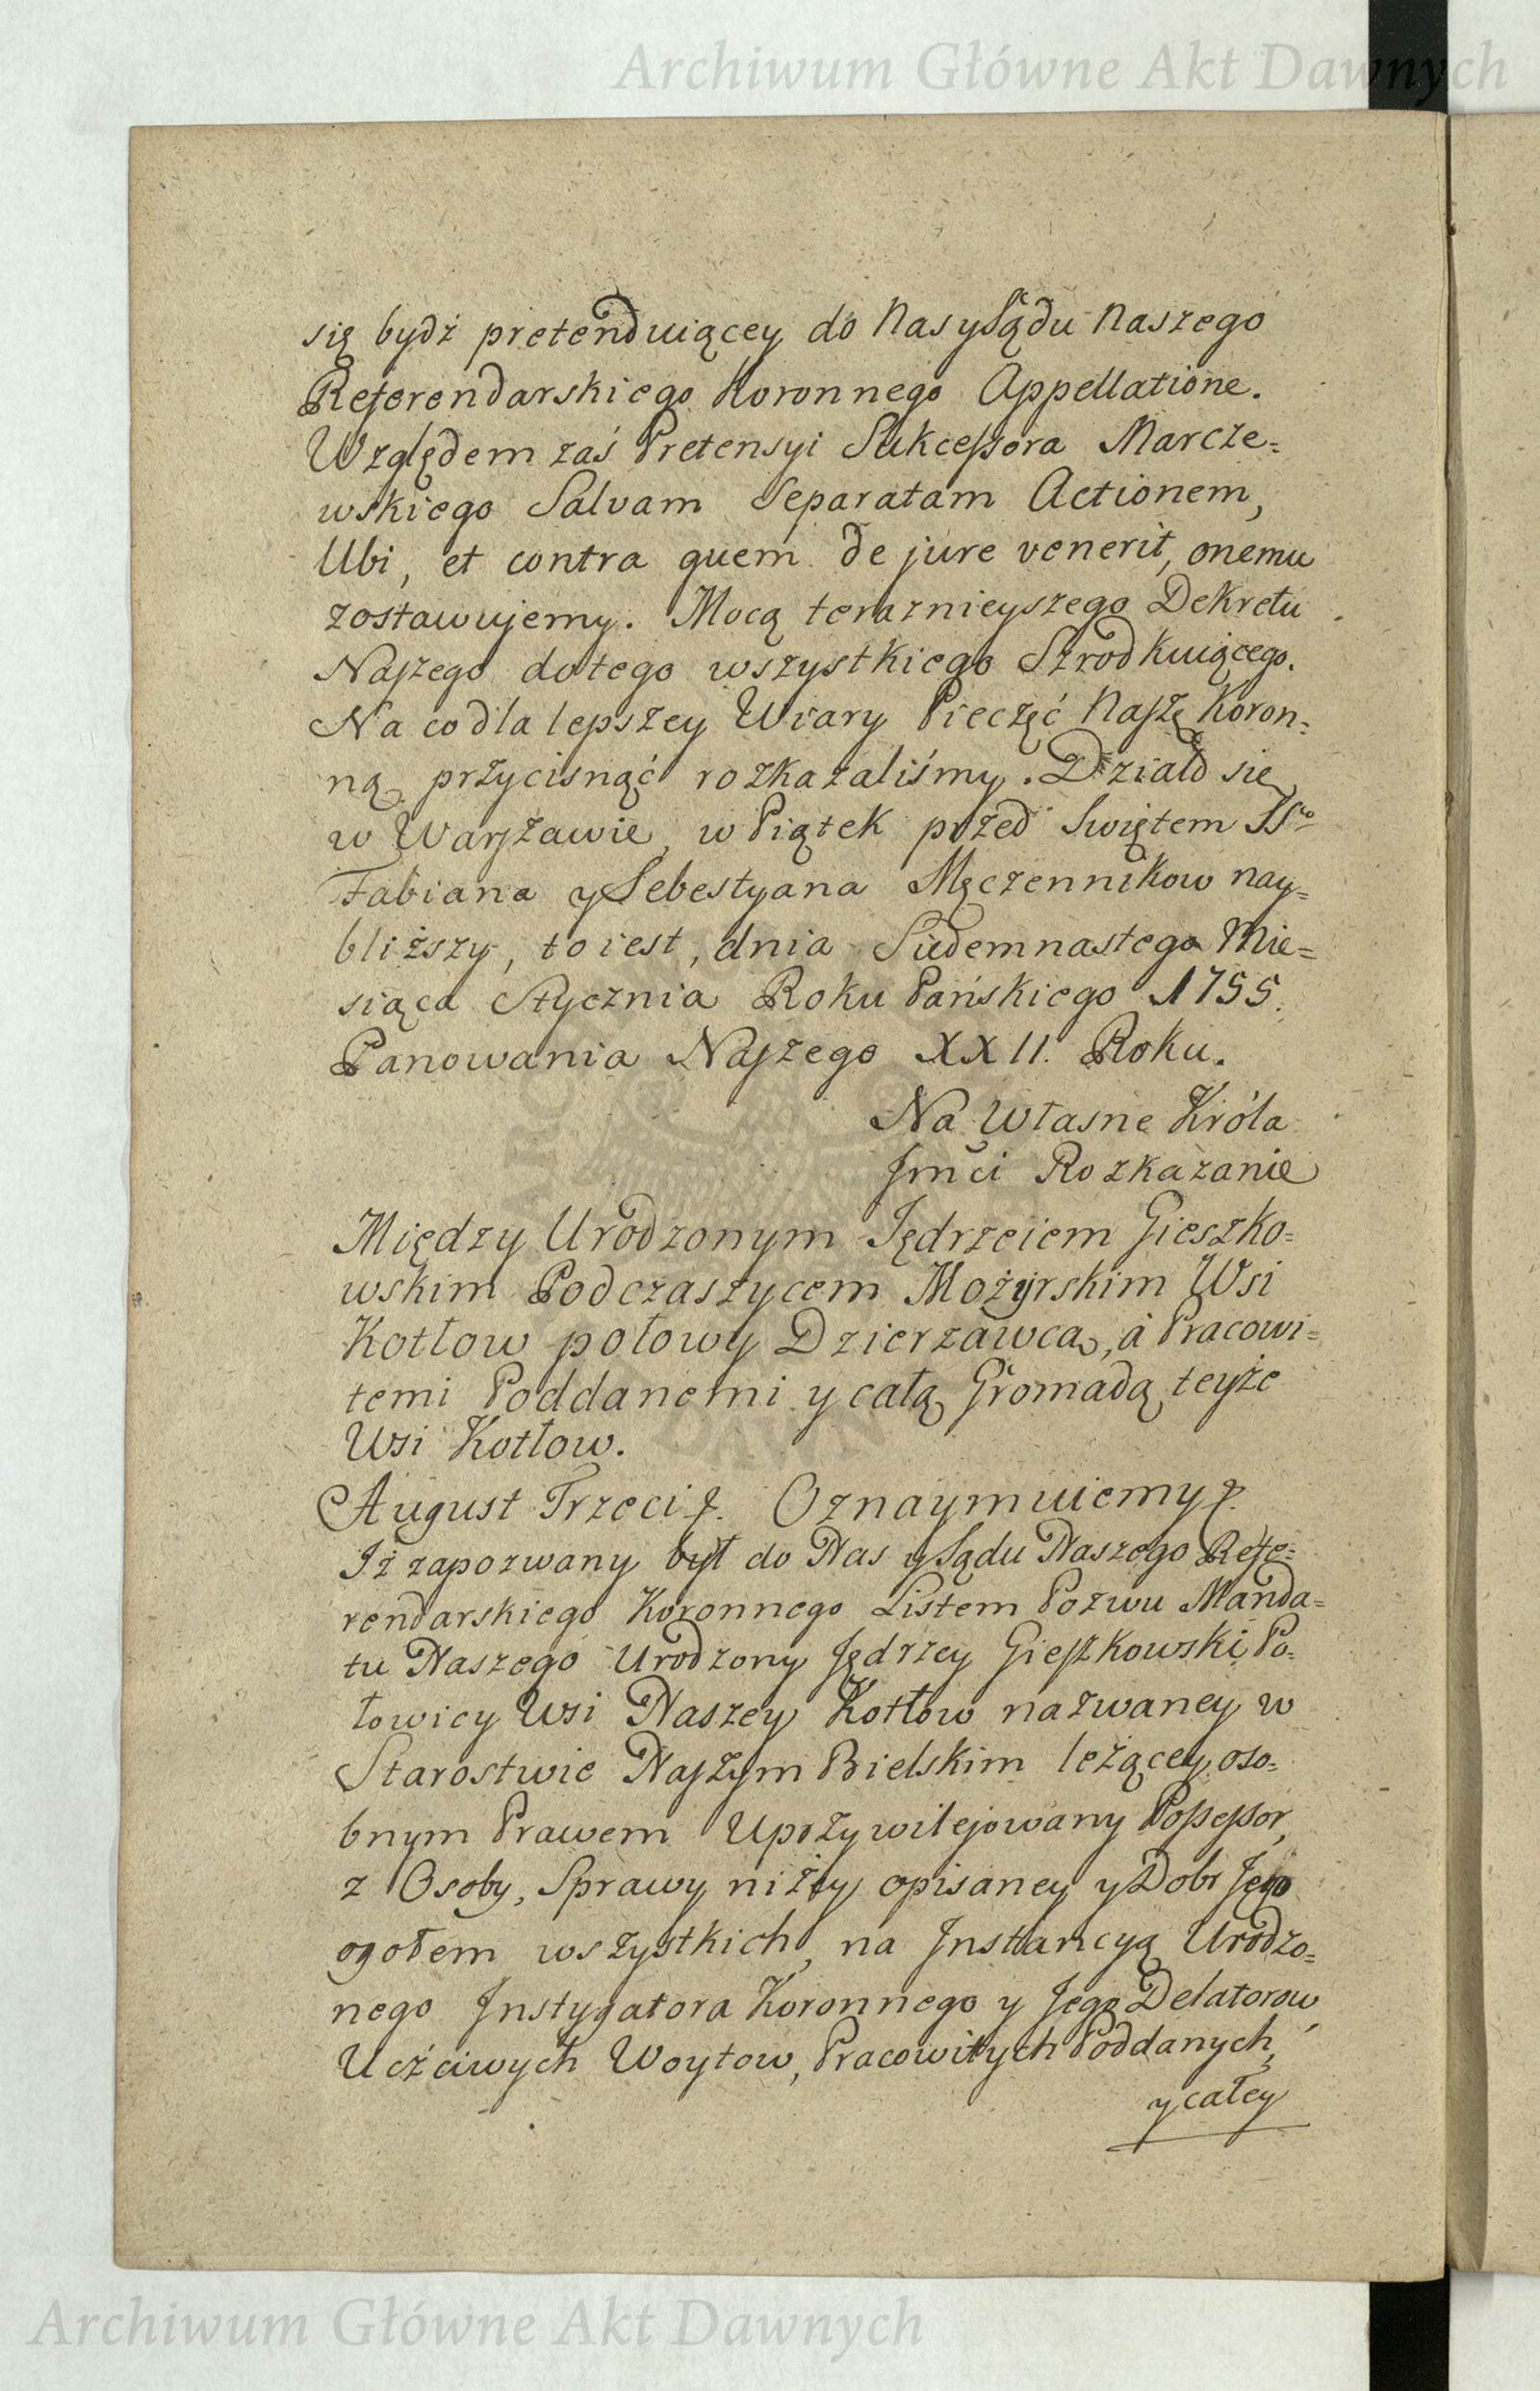 Archiwum Główne Akt Dawnych
się bydź pretenduiącey do Nas y Sądu Naszego
Referendarskiego Koronnego Appellatione.
Względem zaś Pretensyi Sukcessora Marcze=
wskiego Salvam Separatam Actionem,
Ubi, et contra quem de jure venerit, onemu
zostawujemy. Mocą teraznieyszego Dekretu
Naszego do tego wszystkiego Szrodkuiącego.
Na co dla lepszey Wiary Pieczęć Naszę Koron=
ną przycisnąć rozkazaliśmy. Działo się
w Warszawie, w Piątek przed Swiętem SSw
Fabiana y Sebestyana Męczennikow nay=
bliższy, to iest, dnia Siedemnastego Mie=
siąca Stycznia Roku Pańskiego 1755.
Panowania Naszego XXII. Roku.
Na Własne Króla
Jmci Rozkazanie
Między Urodzonym Jędrzeiem Gieszko=
wskim Podczaszycem Możyrskim Wsi
Kotłow połowy Dzierzawcą, á Pracowi=
temi Poddanemi y całą Gromadą teyże
Wsi Kotłow.
August Trzeci p. Oznaymuiemy p.
Iż zapozwany był do Nas y Sądu Naszego Refe=
rendarskiego Koronnego Listem Pozwu Manda=
tu Naszego Urodzony Jędrzey Gieszkowski Po=
łowicy Wsi Naszey Kotłow nazwaney w
Starostwie Naszym Bielskim leżącey oso=
bnym Prawem Uprzywilejowany Possessor,
z Osoby, Sprawy niży opisaney y Dobr Jego
ogołem wszystkich, na Jnstancyą Urodzo=
nego Jnstygatora Koronnego y Jego Delatorow,
Uczciwych Woytow, Pracowitych Poddanych,
y całey
Archiwum Główne Akt Dawnych